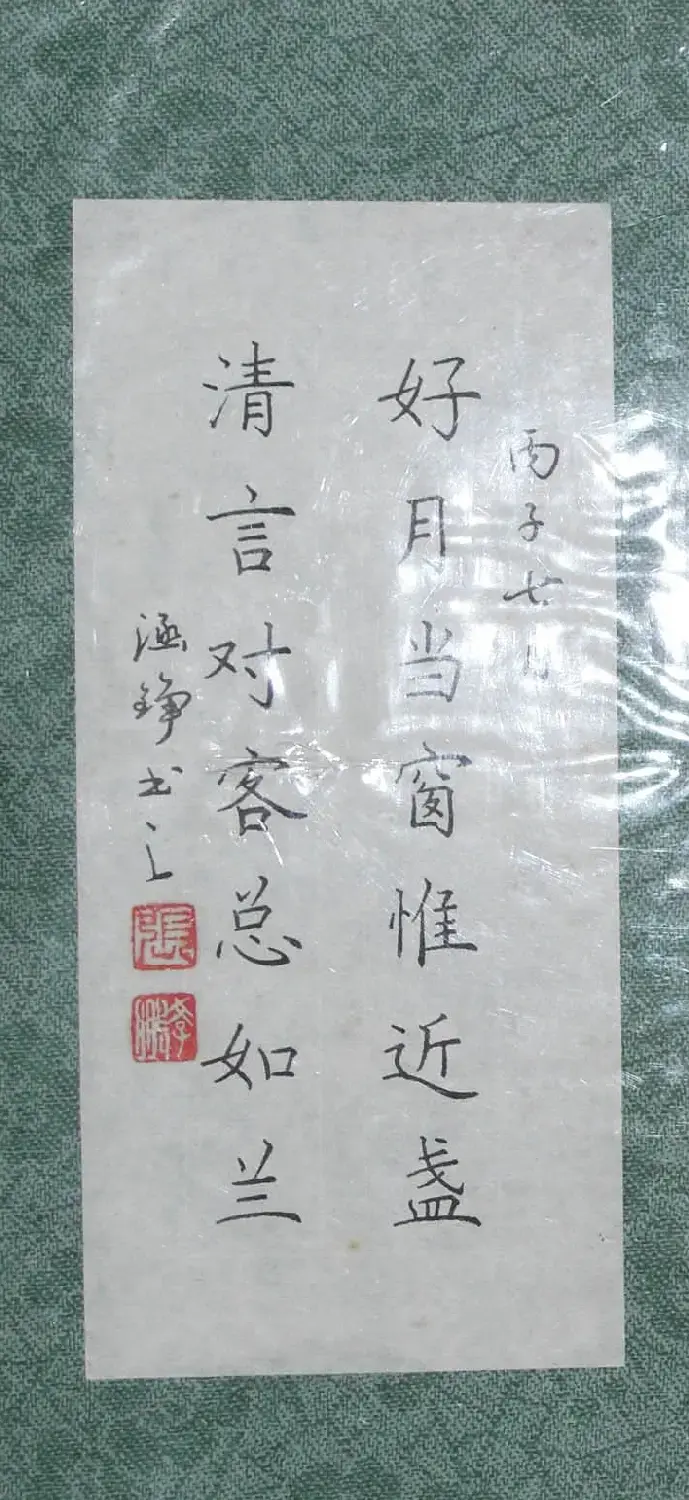 丙子七月
好月当窗惟近盏
清言对客总如兰
涵铮书之
張